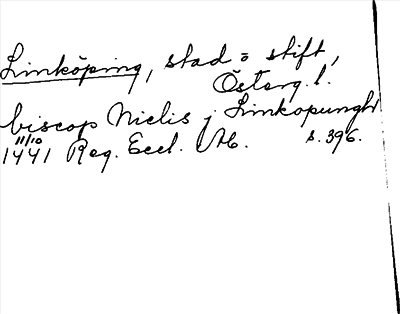 Linköping, stad o stift,
Österg. l.
biscop Niclis j Linkopungh
11/10
1441 Reg. Eccl. s. 396.